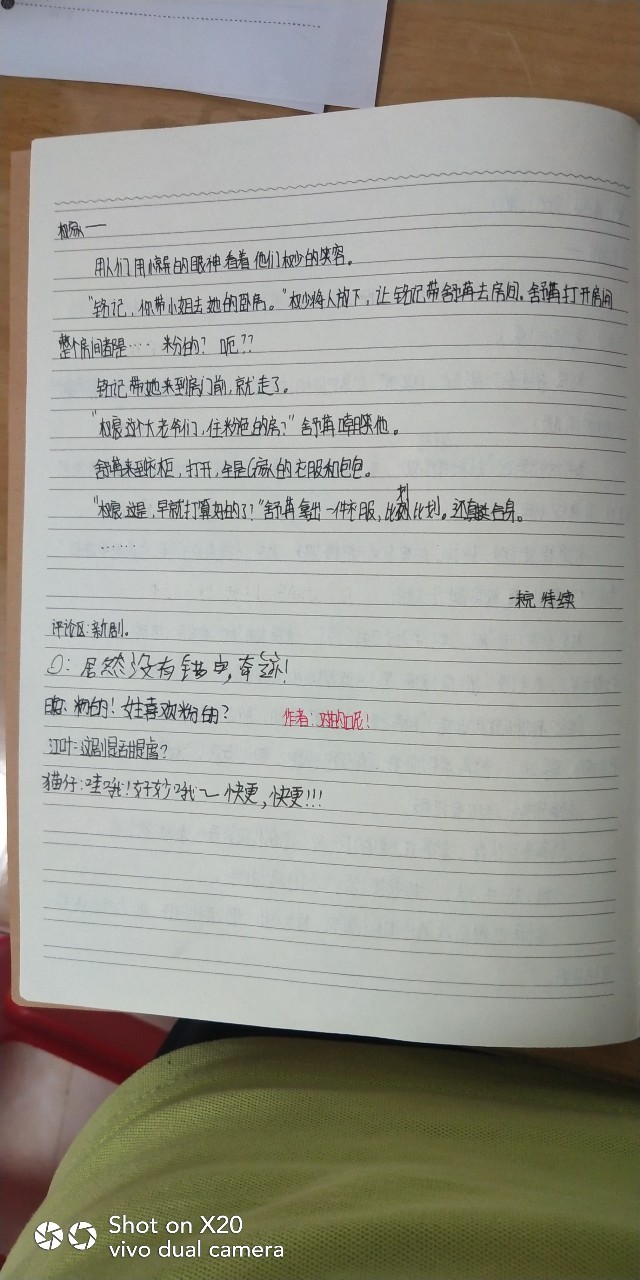 权家——
用人们用惊异的眼神看着他们权少的笑容。
"铭记,你带小姐去她的卧房。"权少将人放下,让铭记带舒苒去房间。舒苒打开房间
整个房间都是…… 粉的? 呃??
铭记带她来到房门前,就走了。
"权宸这个大老爷们,住粉色的房?"舒苒嘲笑他。
舒苒来到衣柜,打开,全是G家的衣服和包包。
"权宸这是,早就打算好的了?"舒苒拿出一件衣服,比划比划。还真挺合身。
……
待续
评论区:新剧。
O:居然没有错字,奇迹!
粉的!女生喜欢粉的?
作者:对的呢!
江叶:这剧是否甜虐?
猫仔:哇哦!好好哦~快更,快更!!!
Shot on X20
vivo dual camera